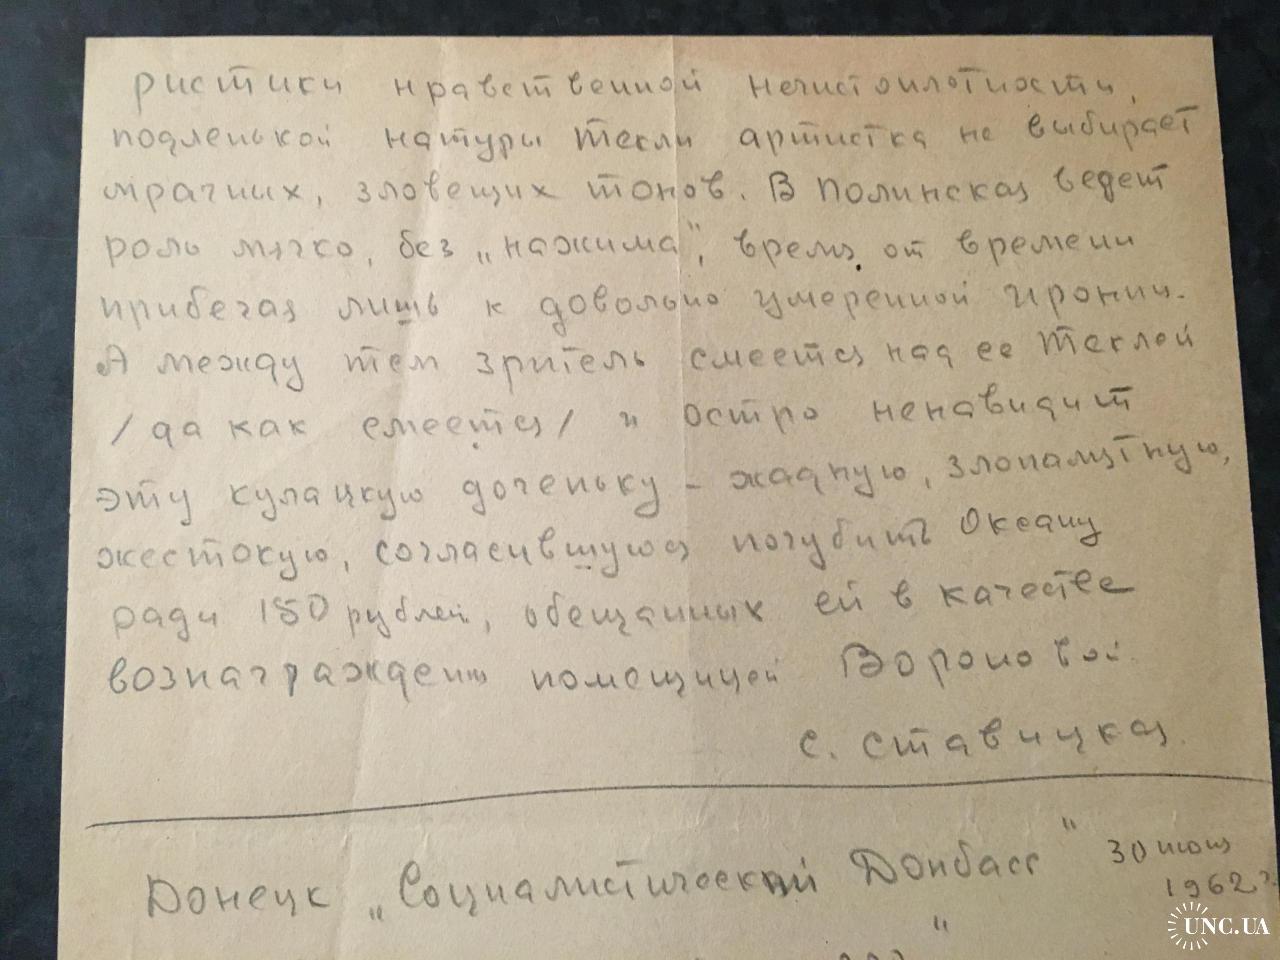 ристики нравственной нечистоплотности,
подленькой натуры Теклы артистка не выбирает
мрачных, зловещих тонов. В Полинская ведет
роль мягко, без „нажима", время от времени
прибегая лишь к довольно умеренной иронии.
А между тем зритель смеется над ее Теклой
/да как смеется/ и остро ненавидит
эту кулацкую доченьку - жадную, злопамятную,
жестокую, согласившуюся погубить Оксану
ради 150 рублей, обещанных ей в качестве
вознаграждения помещицей Вороновой.
С. Ставицкая.
Донецк „Социалистический Донбасс" 30 июня
1962 г.
UNC.UA